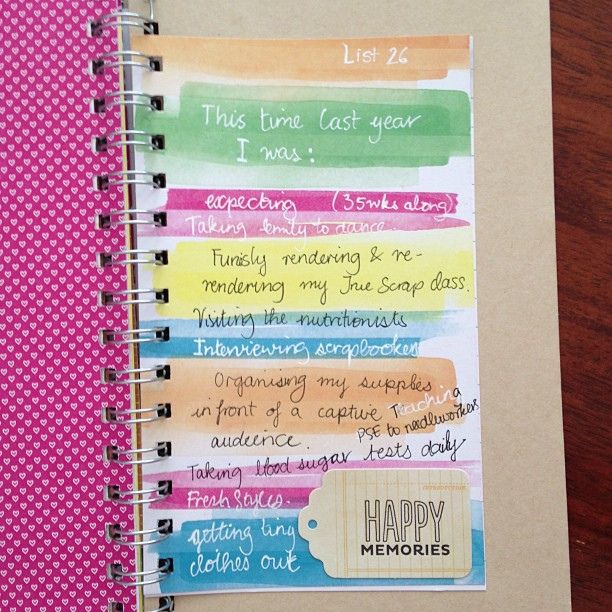 List 26
This time last year
I was:
expecting (35wks along)
Taking Emily to dance.
Furiously rendering & re-
rendering my True Scrap class.
Visiting the nutritionists
Interviewing scrapbookers
Organising my supplies
in front of a captive
audience.
Teaching
PSE to needleworkers
Taking blood sugar tests daily
Fresh Styles.
getting tiny
clothes out
HAPPY
MEMORIES